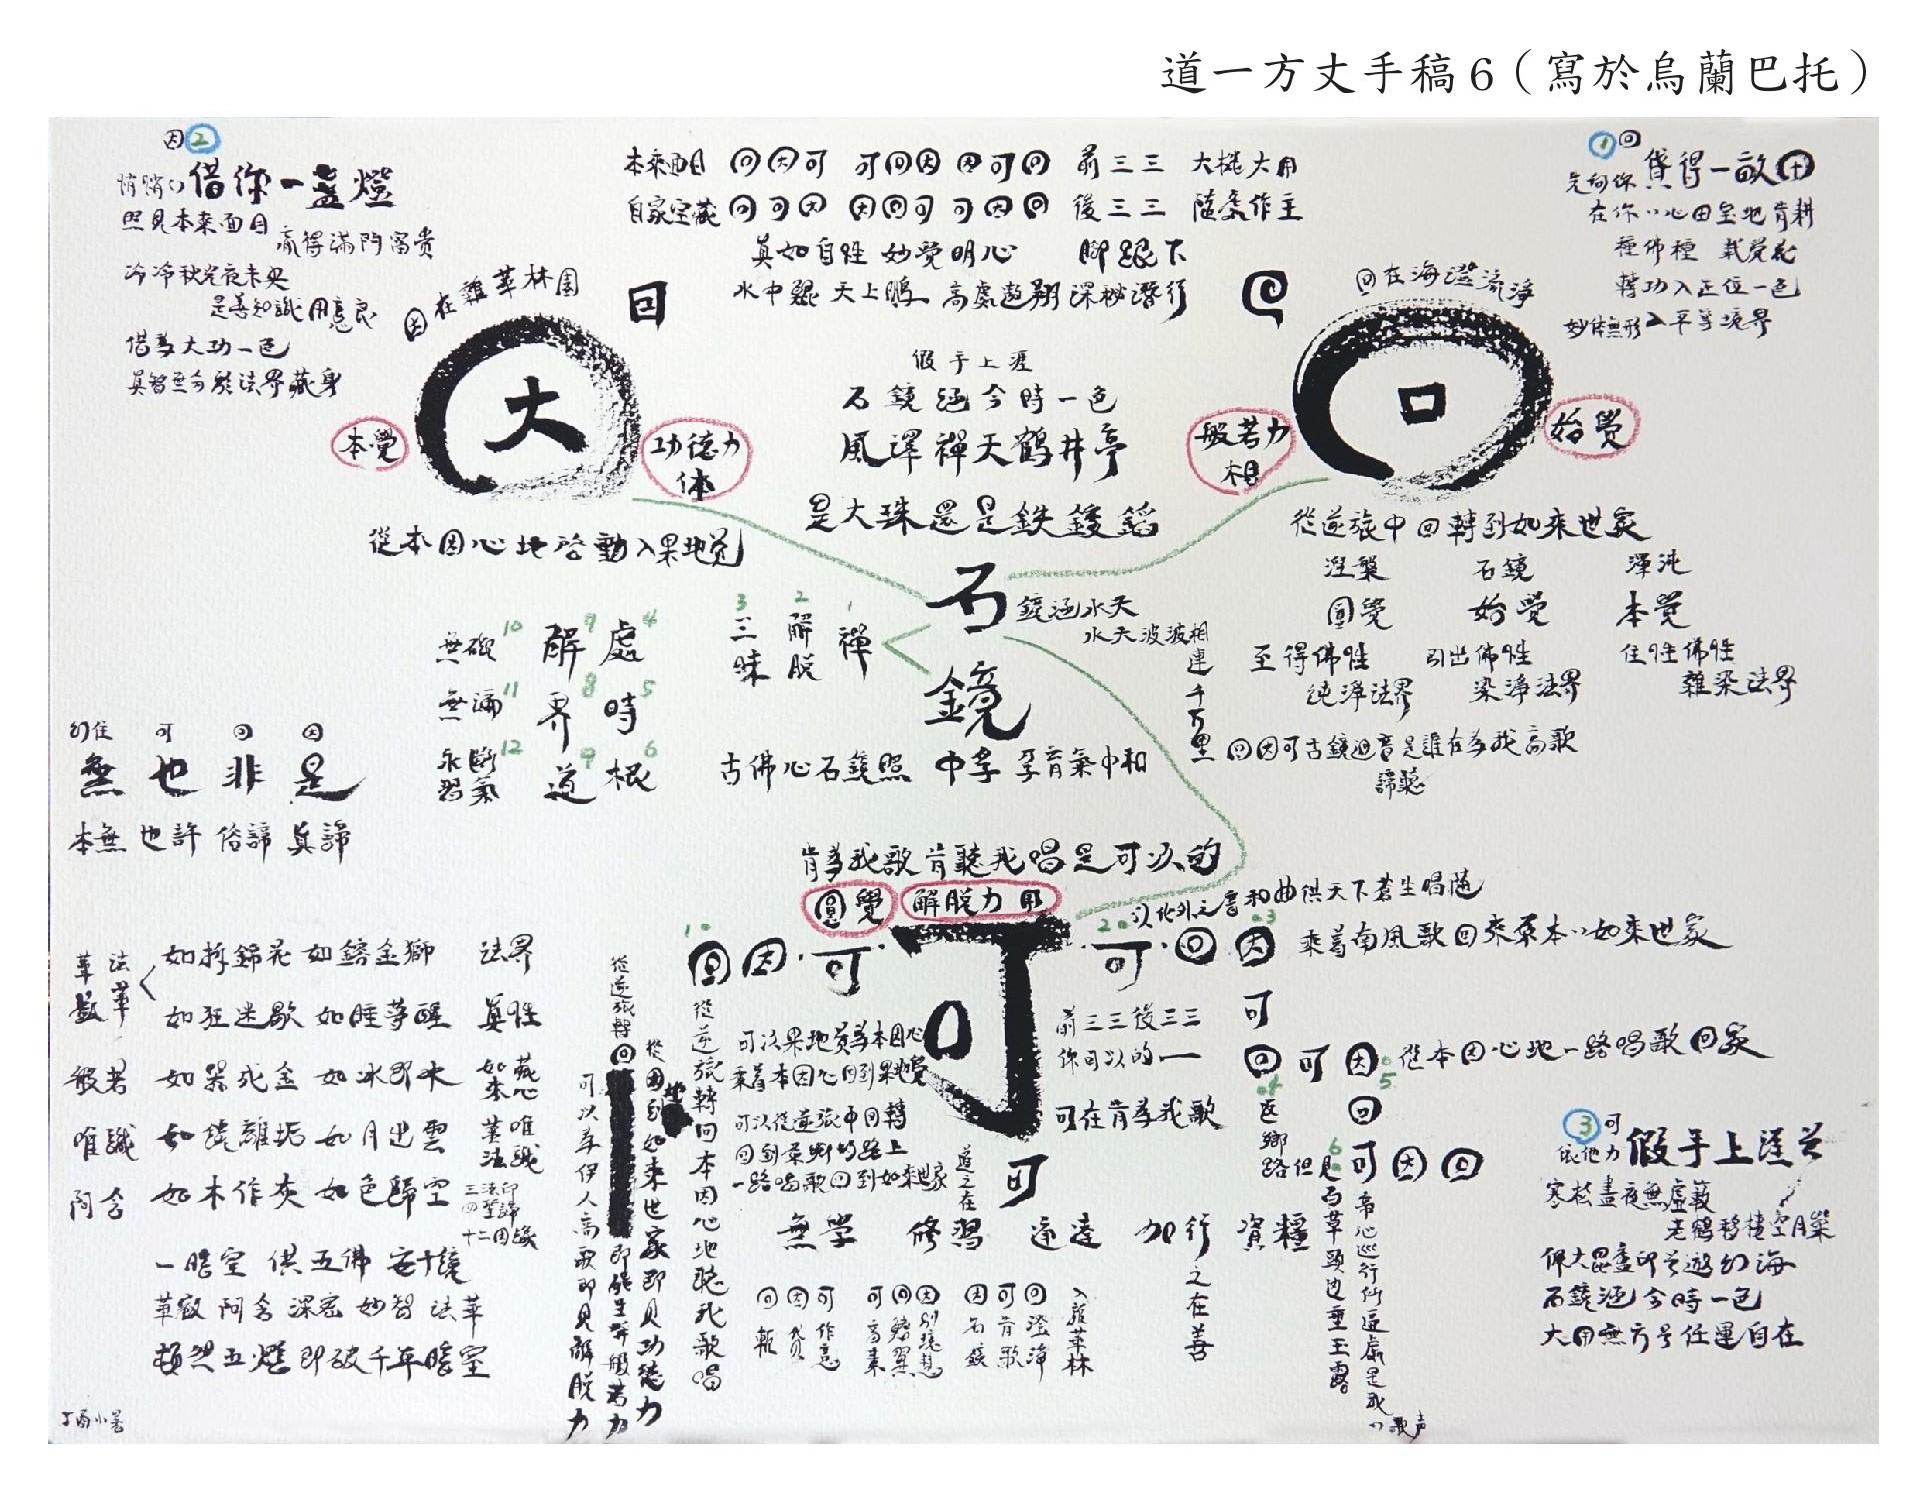 道一方丈手稿6（寫於烏蘭巴托）
因 2
悄悄的 借你一盞燈
照見本來面目
贏得滿門富貴
冷冷秋光夜未央
是善知識用意良
借莩大功一色
法界藏身
因在雜華林園
大
本覺
功德力
体
從本因心地啓動入果地覺
本來面目 回因可 可回因 因可回 前三三 大機大用
自家宝藏 回可因 因回可 可因回 後三三 隨處作主
真如自性 妙覺明心 腳跟下
水中鯤 天上鵬 高處遨翔深秘潛行
回
假手上涯
石鏡涵今時一色
風澤禪天鶴井亭
是大珠還是鉄鏤鎝
1 回
先向你 貸得一畝田
在你心田里地肯耕
種佛種 栽覺花
轉功入正位一色
妙体無形入平等境界
回在海澄流淨
口
般若力
相
始覺
從逆旅中回轉到如來世家
涅槃 石鏡 渾沌
圓覺 始覺 本覺
至得佛性 引出佛性 住性佛性
純淨法界 染淨法界 雜染法界
回因可古鏡迴音是誰在為我高歌
諦聽
石鏡
鏡涵水天
水天波波相連千万里
1 禪
2 解脫
3 三昧
4 處
5 時
6 根
道
8 界
9 解
10 無礙
11 無漏
12 永斷習氣
古佛心石鏡照 中孚 孚育氣中和
幻住 可 回 因
無 也 非 是
本無 也許 俗諦 真諦
肯為我歌肯聽我唱是可以的
圓覺
解脫力 用
以化外之音和曲供天下蒼生唱隨
回因·可
可
可·回因
乘着南風歌回來原本的如來世家
可
回可因
從本因心地一路唱歌回家
回
可因回
前三三後三三
你可以的一
可在肯為我歌
返鄉路但見
百草頭边垂玉露
帝心巡行所逼處是我的歌声
可以果地覺為本因心
乘着本因心回到果地覺
可以從逆旅中回轉
回到來時的路上
一路唱歌回到如來世家
道之在可
從逆旅轉回本因心地聽我歌唱
從因到如來世家即見功德力
可以為伊人高歌即見解脫力
華嚴 法華 如拆錦花 如鎔金獅 法界
如狂迷歇 如睡夢醒 真性
般若 如器死金 如冰即水 如來藏心
唯識 如鏡離垢 如月出雲 萬法唯識
阿含 如木作灰 如色歸空
三法印
四聖諦
十二因緣
一暗室 供五佛 安十鏡
華嚴 阿含 深密 妙智 法華
頓然五燈即破千年暗室
無學 修習 通達 加行 資糧
之在善
回因可作意
可回因別境慧
因可回澄海
入雜華林
3 可
依他力 假手上涯
寒松盡夜無虛籟
老鶴移棲空月巢
石鏡涵今時一色
大用無方任運自在
丁酉小暑